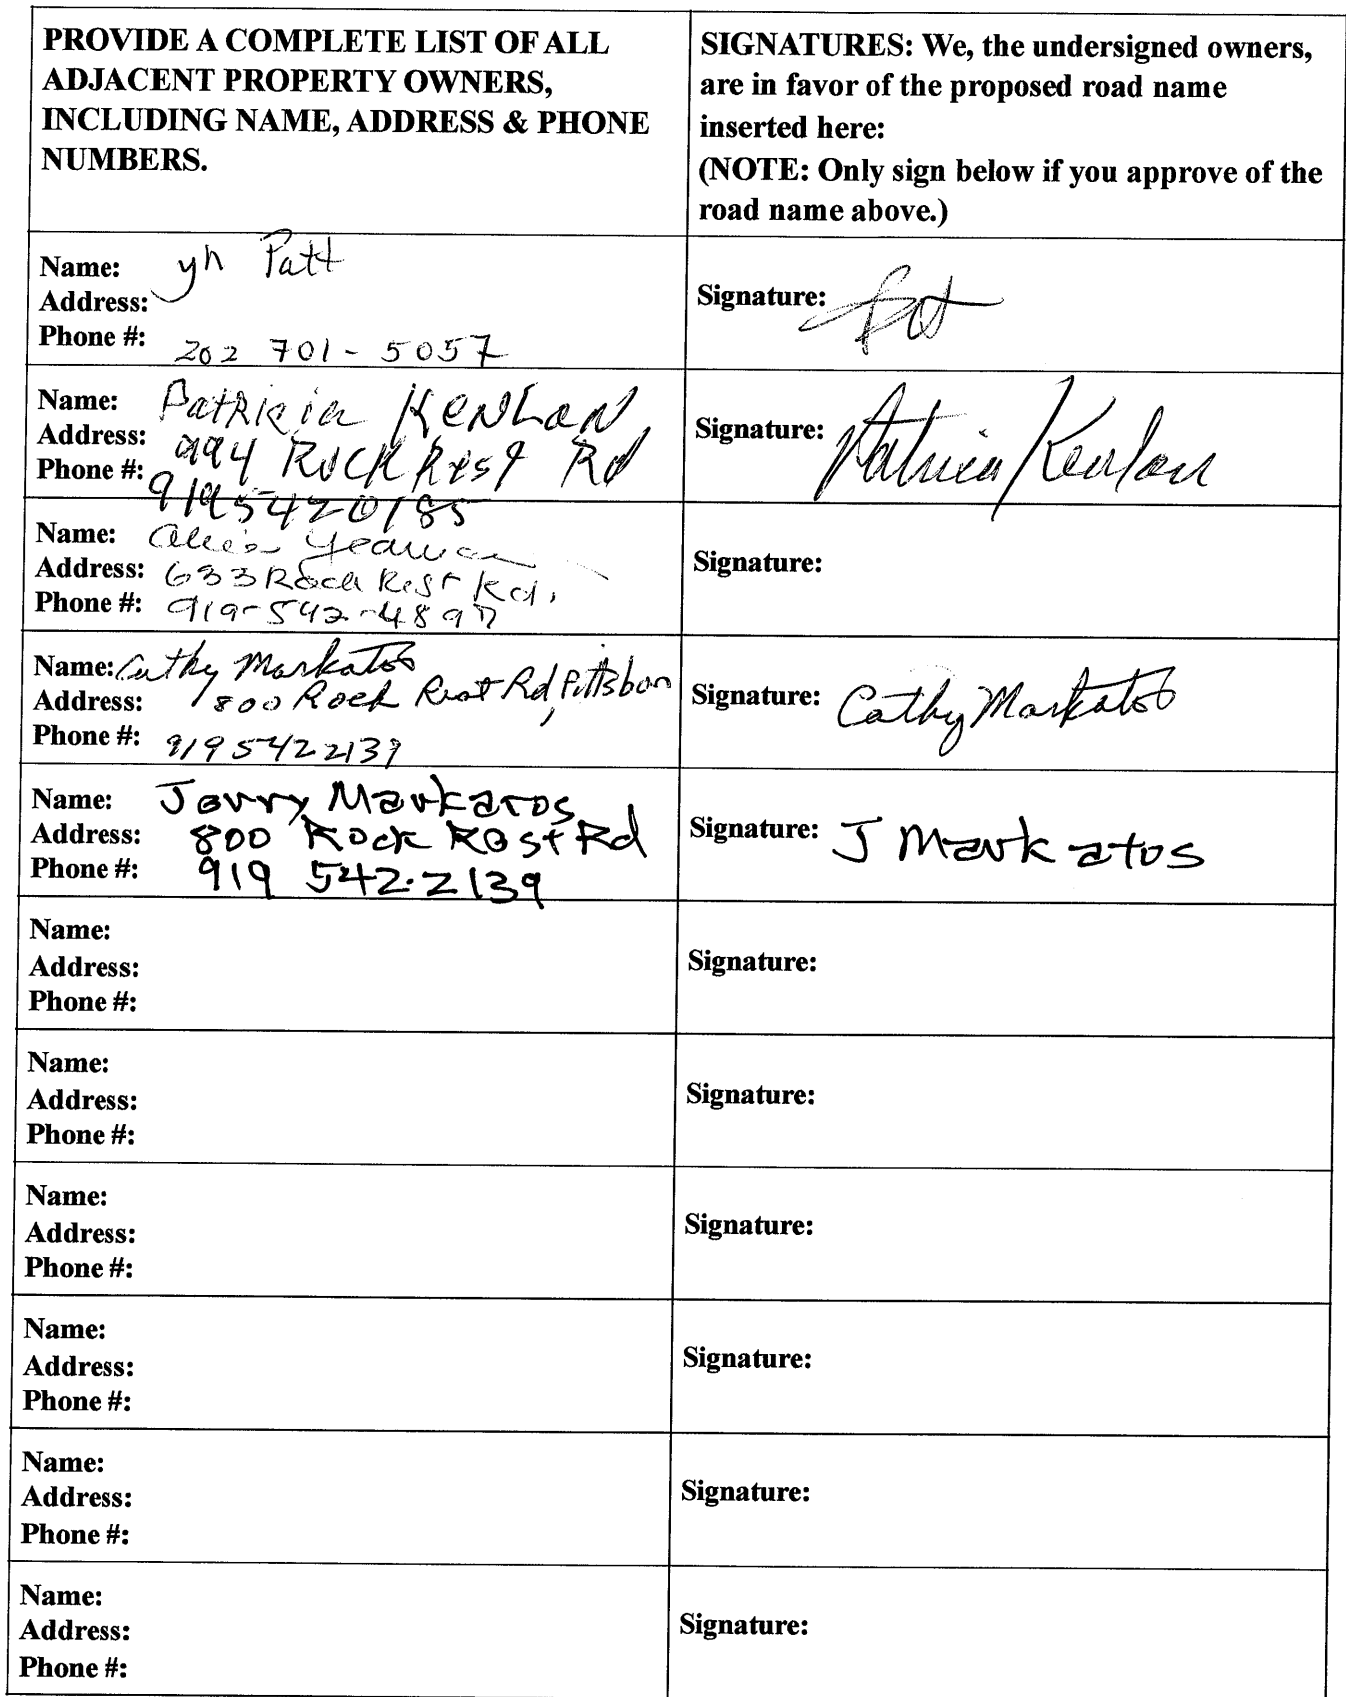 PROVIDE A COMPLETE LIST OF ALL
ADJACENT PROPERTY OWNERS,
INCLUDING NAME, ADDRESS & PHONE
NUMBERS.
SIGNATURES: We, the undersigned owners,
are in favor of the proposed road name
inserted here:
(NOTE: Only sign below if you approve of the
road name above.)
Name: yh Patt
Address:
Phone #: 202 701-5057
Signature:
Name: Patricia Kenlan
Address: 994 Rock Rest Rd
Phone #: 9195420185
Signature: Patricia Kenlan
Name:
Address: 633 Rock Rest Rd.
Phone #: 919-542-4897
Signature:
Name: Cathy Markatos
Address: 800 Rock Rest Rd, Pittsboro
Phone #: 9195422139
Signature: Cathy Markatos
Name: Jerry Markatos
Address: 800 Rock Rest Rd
Phone #: 919 542-2139
Signature: J Markatos
Name:
Address:
Phone #:
Signature:
Name:
Address:
Phone #:
Signature:
Name:
Address:
Phone #:
Signature:
Name:
Address:
Phone #:
Signature:
Name:
Address:
Phone #:
Signature:
Name:
Address:
Phone #:
Signature: